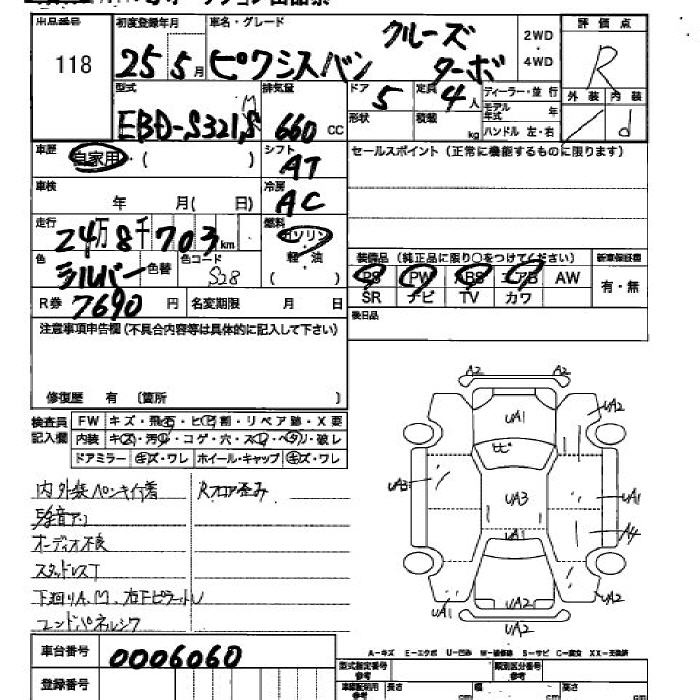 出品番号
118
初度登録年月
25 5月
車名・グレード
ピクシスバン
クルーズ
ターボ
2WD
・
4WD
評価点
R
外装 内装
d
型式
EBD-S321M
排気量
660 CC
ドア
5
定員
4人
形状
積載
kg
ディーラー・並行
モデル年式 年
ハンドル 左・右
車歴
自家用・( )
シフト
AT
セールスポイント (正常に機能するものに限ります)
車検
年 月( 日)
冷房
AC
走行
24万8千703km
燃料
ガソリン
・
軽・油
( )
色
シルバー
色替
色コード
S28
R券
7690 円
名変期限 月 日
装備品 (純正品に限り○をつけてください)
PS PW ABS エアB AW
SR ナビ TV カワ
新車保証書
有・無
後日品
注意事項申告欄 (不具合内容等は具体的に記入して下さい)
修復歴 有 〔箇所 〕
検査員
記入欄
FW キズ・飛石・ヒビ割・リペア跡・X要
内装 キズ・汚れ・コゲ・穴・スレ・ヘタリ・破レ
ドアミラー キズ・ワレ ホイール・キャップ キズ・ワレ
内外装ペンキ付着
Rフロア歪み
オーディオ不良
スタッドレスT
A2 A2
UA1
UA2
ヒビ
UA3
UA3
UA1
UA1
A4
UA1
UA2
UA2
UA2
A-キズ E-エクボ U-凹み W-補修跡 S-サビ C-腐食 XX-交換済
車台番号
0006060
登録番号
型式指定番号
参考
類別区分番号
参考
車検証明用
参考
長さ
cm
幅
cm
高さ
cm